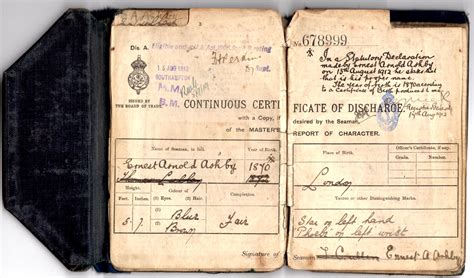 Dis. A.
15 AUG 1912
SOUTHAMPTON
B. M.
ISSUED BY
THE BOARD OF TRADE.
CONTINUOUS CERTI
with a Copy, if
OF THE MASTER'S
Name of Seaman, in full.
Year of Birth.
Ernest Arnold Ashby
1870
Height.
Colour of
Complexion.
Feet.
Inches.
5
7
Blue
Brown
Fair
Signature of
No. 678999
In a Statutory Declaration
made by Ernest Arnold Ashby
on 15th August 1912 he states that
this is his proper name.
The year of birth is 1870 according
to a Certificate of Birth produced to me
FICATE OF DISCHARGE.
desired by the Seaman,
REPORT OF CHARACTER.
Place of Birth.
Officer's Certificate, if any.
London
Tattoo or other Distinguishing Marks.
Star on left hand
on left wrist
Ernest A. Ashby